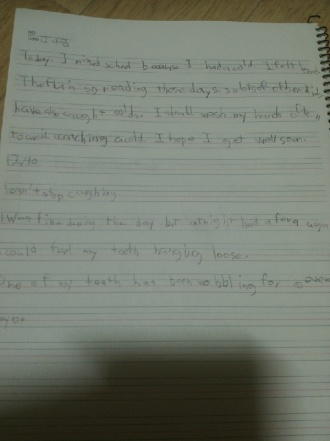 Today, I missed school because I had a cold. I felt
The flu's spreading these days so lots of other kids
have also caught colds. I should wash my hands often
to avoid catching a cold. I hope I get well soon.
I can't stop coughing
I was fine during the day but at night had a fever again
I could feel my tooth hanging loose.
One of my teeth has been wobbling for